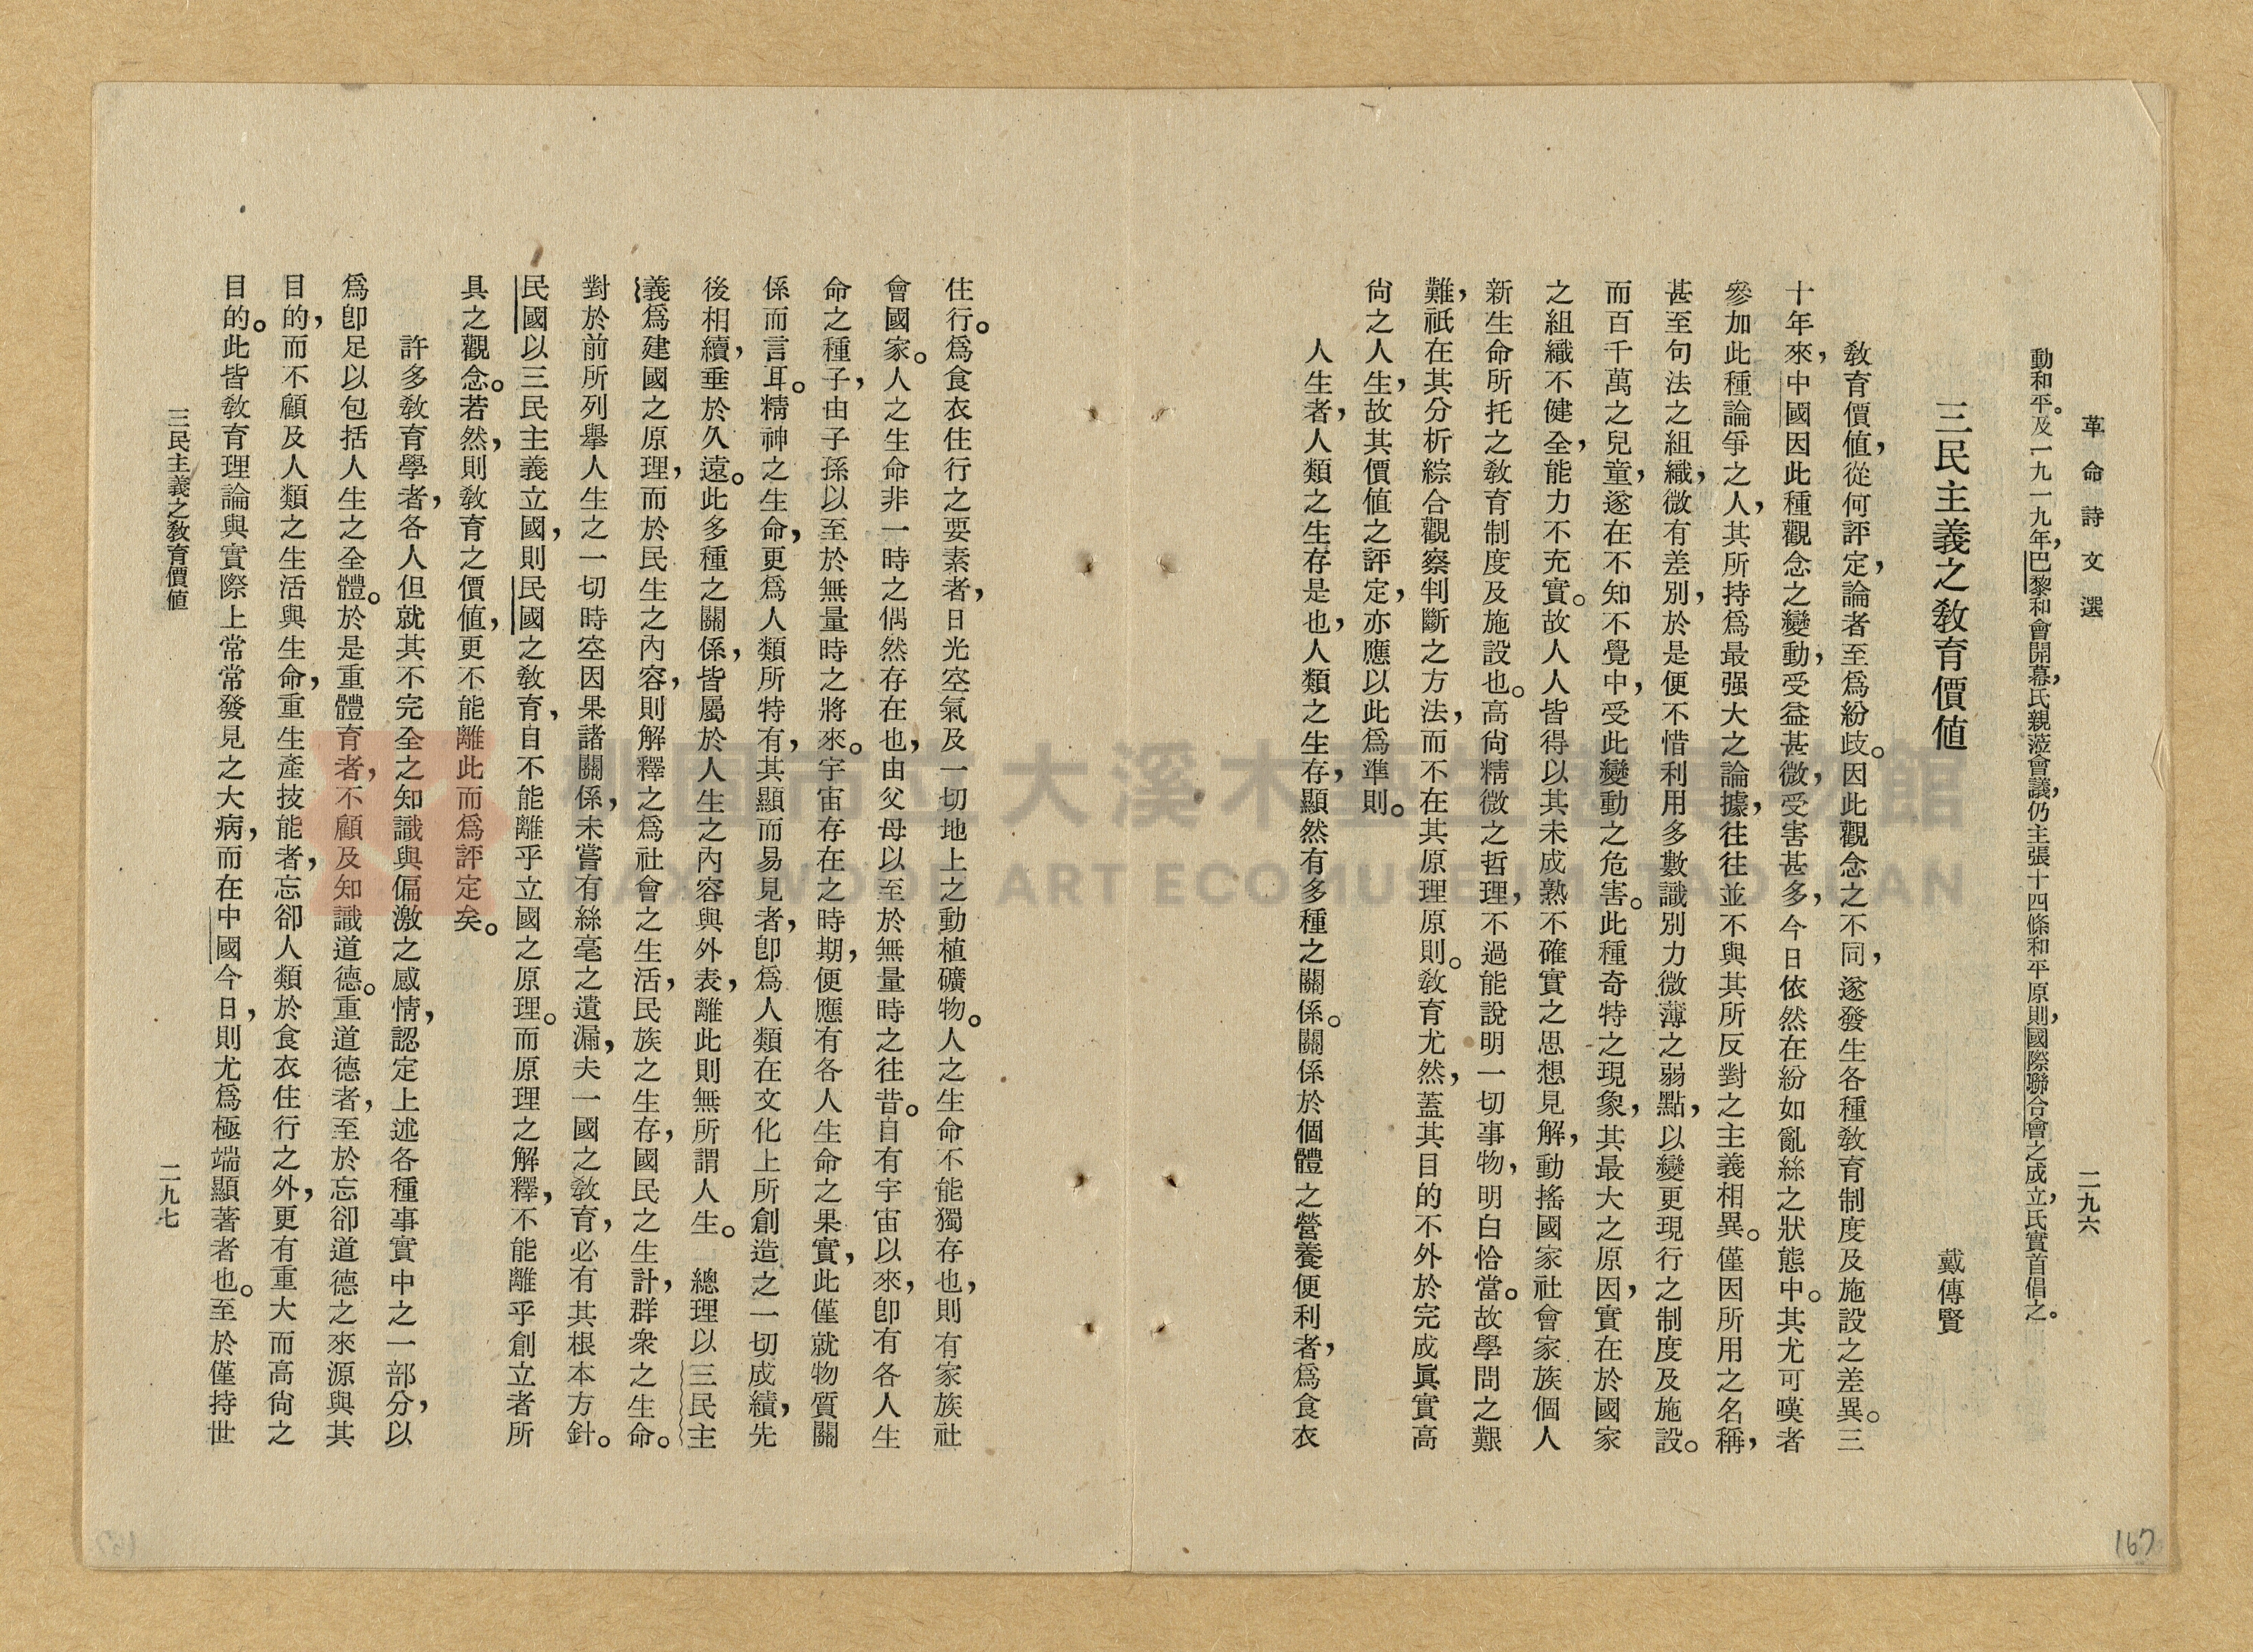 革命詩文選
二九六
動和平。及一九一九年，巴黎和會開幕，氏親蒞會議，仍主張十四條和平原則，國際聯合會之成立，氏實首倡之。
三民主義之敎育價値
戴傳賢
敎育價値，從何評定，論者至爲紛歧。因此觀念之不同，遂發生各種敎育制度及施設之差異。三
十年來，中國因此種觀念之變動，受益甚微，受害甚多，今日依然在紛如亂絲之狀態中。其尤可嘆者
參加此種論爭之人，其所持爲最强大之論據，往往並不與其所反對之主義相異。僅因所用之名稱，
甚至句法之組織，微有差別，於是便不惜利用多數識別力微薄之弱點，以變更現行之制度及施設。
而百千萬之兒童，遂在不知不覺中，受此變動之危害。此種奇特之現象，其最大之原因，實在於國家
之組織不健全，能力不充實。故人人皆得以其未成熟不確實之思想見解，動搖國家社會家族個人
新生命所托之敎育制度及施設也。高尙精微之哲理，不過能說明一切事物，明白恰當。故學問之艱
難，祇在其分析綜合觀察判斷之方法，而不在其原理原則。敎育尤然，蓋其目的不外於完成眞實高
尙之人生，故其價値之評定，亦應以此爲準則。
人生者，人類之生存是也，人類之生存，顯然有多種之關係。關係於個體之營養便利者，爲食衣
住行。爲食衣住行之要素者，日光空氣及一切地上之動植礦物。人之生命不能獨存也，則有家族社
會國家。人之生命非一時之偶然存在也，由父母以至於無量時之往昔。自有宇宙以來，卽有各人生
命之種子，由子孫以至於無量時之將來。宇宙存在之時期，便應有各人生命之果實，此僅就物質關
係而言耳。精神之生命，更爲人類所特有，其顯而易見者，卽爲人類在文化上所創造之一切成績，先
後相續，垂於久遠。此多種之關係，皆屬於人生之內容與外表，離此則無所謂人生。　總理以三民主
義爲建國之原理，而於民生之內容，則解釋之爲社會之生活，民族之生存，國民之生計，群衆之生命。
對於前所列舉人生之一切時空因果諸關係，未嘗有絲毫之遺漏，夫一國之敎育，必有其根本方針。
民國以三民主義立國，則民國之敎育，自不能離乎立國之原理。而原理之解釋，不能離乎創立者所
具之觀念。若然，則敎育之價値，更不能離此而爲評定矣。
許多敎育學者，各人但就其不完全之知識與偏激之感情，認定上述各種事實中之一部分，以
爲卽足以包括人生之全體。於是重體育者，不顧及知識道德。重道德者，至於忘卻道德之來源與其
目的，而不顧及人類之生活與生命，重生產技能者，忘卻人類於食衣住行之外，更有重大而高尙之
目的。此皆敎育理論與實際上常常發見之大病，而在中國今日，則尤爲極端顯著者也。至於僅持世
三民主義之敎育價値
二九七
167
桃園市立大溪木藝生態博物館
DAXI WOOD ART ECOMUSEUM, TAOYUAN